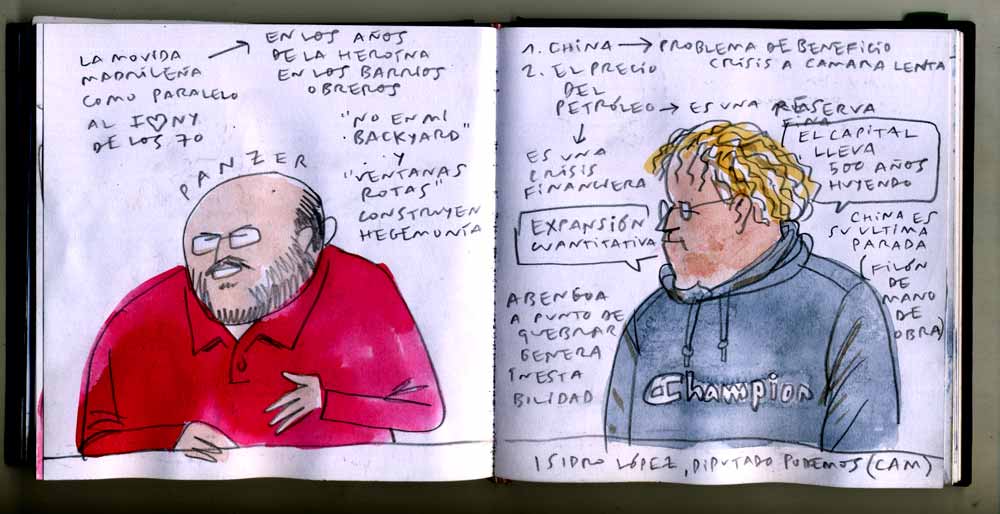 LA MOVIDA
MADRILEÑA
COMO PARALELO
AL I♡NY
DE LOS 70
EN LOS AÑOS
DE LA HEROÍNA
EN LOS BARRIOS
OBREROS
"NO EN MI
BACKYARD"
Y
"VENTANAS
ROTAS"
CONSTRUYEN
HEGEMONÍA
PANZER
1. CHINA → PROBLEMA DE BENEFICIO
CRISIS A CAMARA LENTA
2. EL PRECIO
DEL
PETRÓLEO → ES UNA RESERVA
FINA
ES UNA
CRISIS
FINANCIERA
EL CAPITAL
LLEVA
500 AÑOS
HUYENDO
EXPANSIÓN
CUANTITATIVA
CHINA ES
SU ULTIMA
PARADA
(FILÓN
DE
MANO
DE
OBRA)
ABENGOA
A PUNTO DE
QUEBRAR
GENERA
INESTA
BILIDAD
Champion
ISIDRO LÓPEZ, DIPUTADO PODEMOS (CAM)